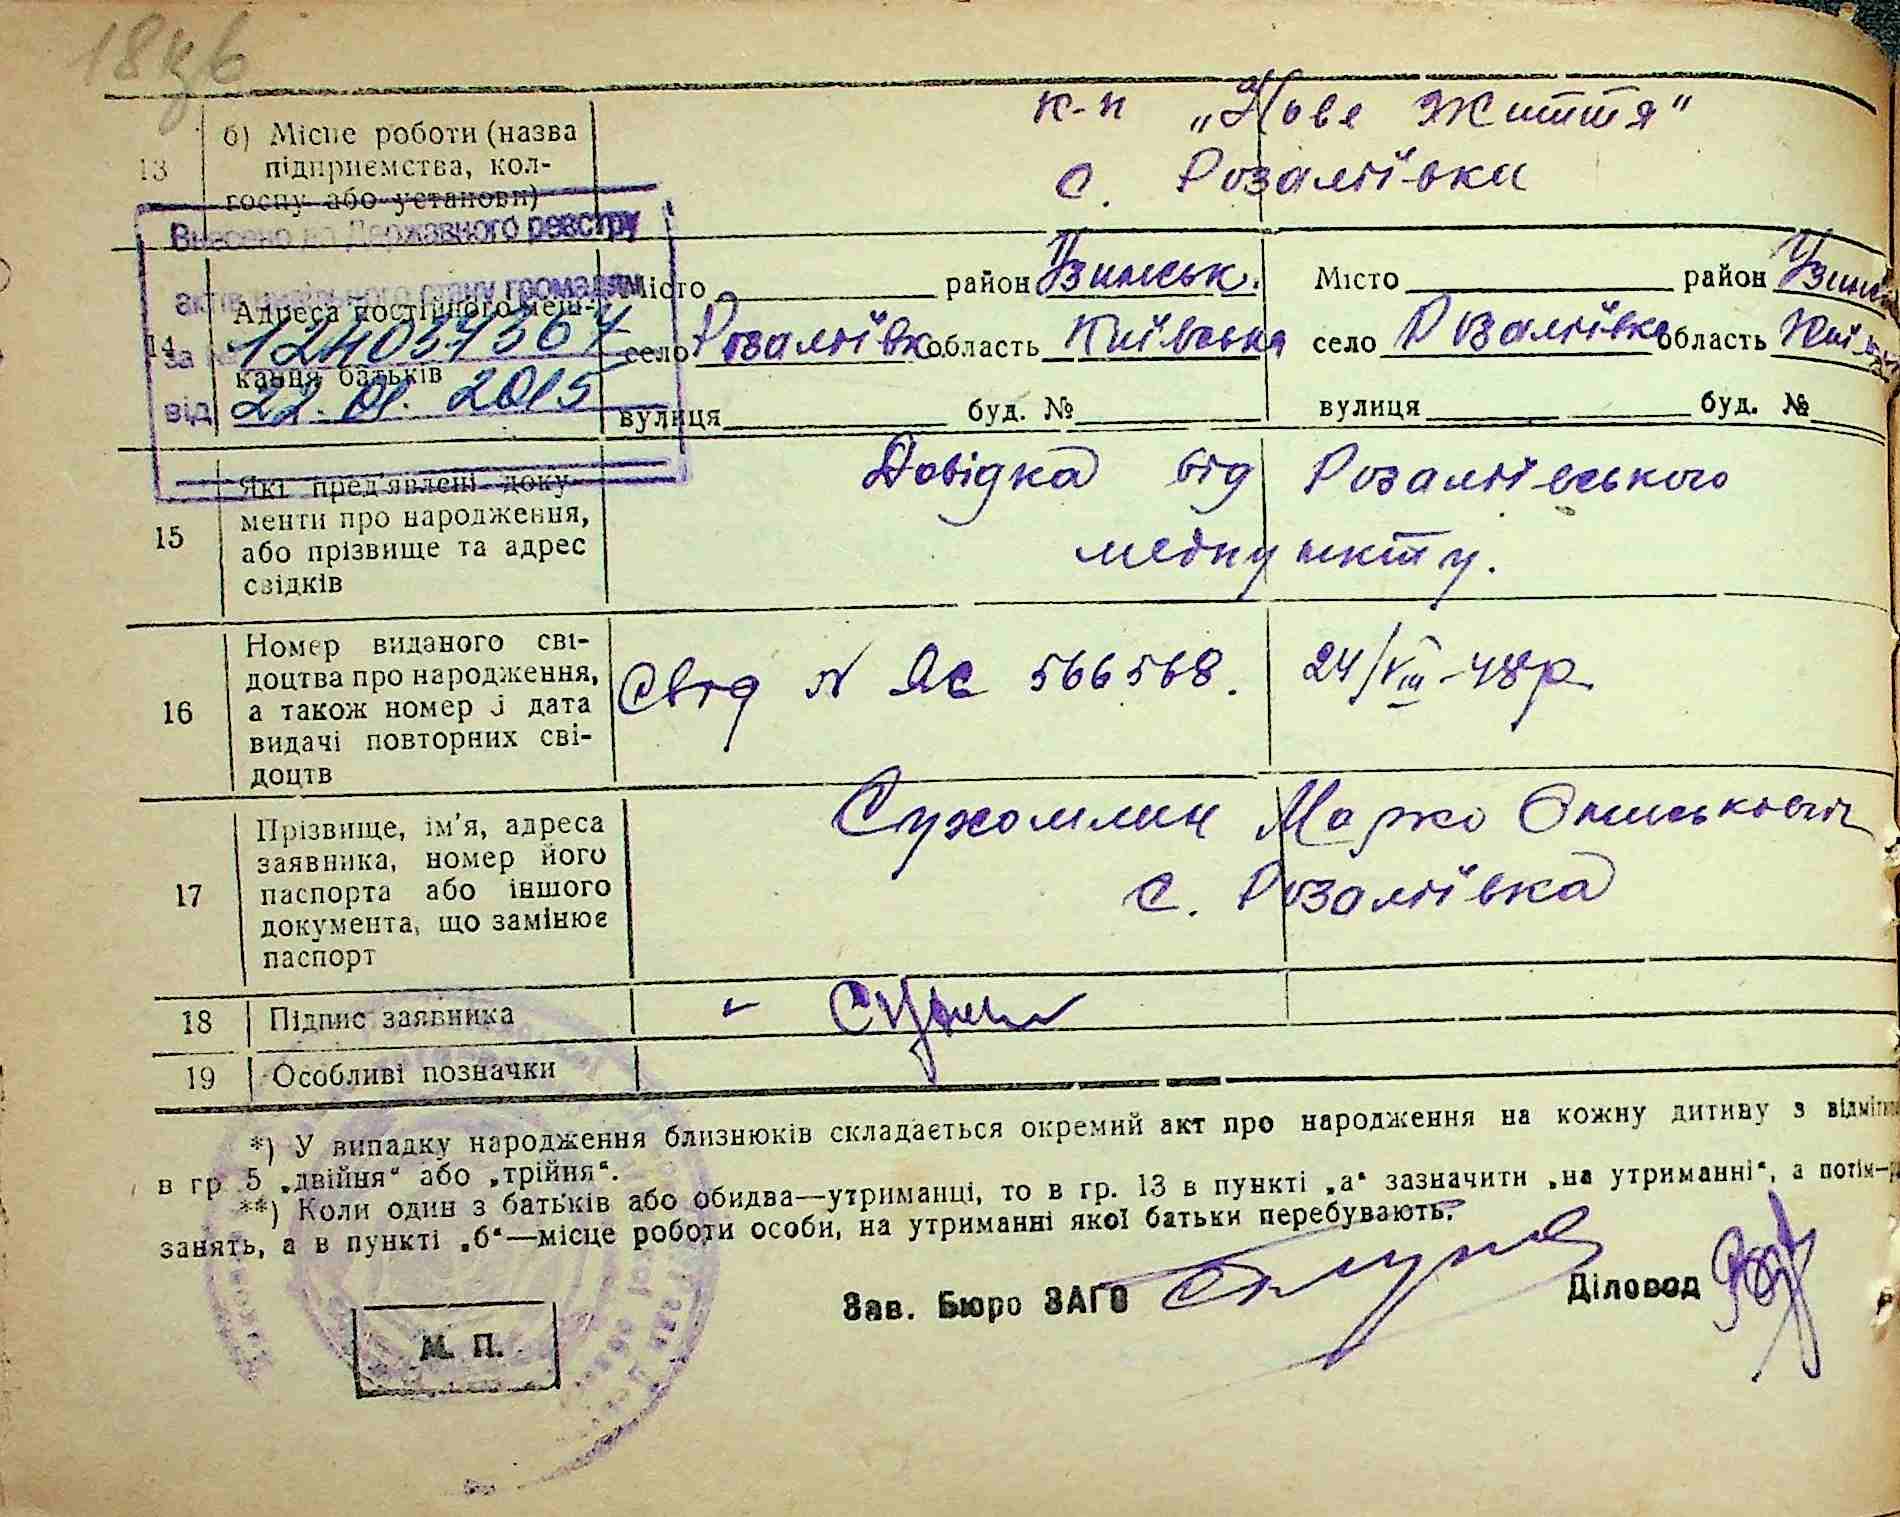 18
13
б) Місце роботи (назва
підприємства, кол-
госпу або установи)
к-п „Нове Життя"
с. Розаліївки
Внесено до Державного реєстру
актів цивільного стану громадян
за № 124037367
від 22.01.2015
14
Адреса постійного меш-
кання батьків
Місто район Узинськ.
село Розаліївка область Київська
вулиця буд. №
Місто район Узинськ
село Розаліївка область Київськ
вулиця буд. №
15
Які пред'явлені доку-
менти про народження,
або прізвище та адрес
свідків
Довідка від Розаліївського
медпункту.
16
Номер виданого сві-
доцтва про народження,
а також номер і дата
видачі повторних сві-
доцтв
Свід N ЯС 566568. 24/VIII-48р.
17
Прізвище, ім'я, адреса
заявника, номер його
паспорта або іншого
документа, що замінює
паспорт
Сухомлин Марко Ониськович
с. Розаліївка
18 Підпис заявника
19 Особливі позначки
*) У випадку народження близнюків складається окремий акт про народження на кожну дитину з відмітко
в гр 5 „двійня“ або „трійня“.
**) Коли один з батьків або обидва—утриманці, то в гр. 13 в пункті „а“ зазначити „на утриманні“, а потім—р
занять, а в пункті „б“—місце роботи особи, на утриманні якої батьки перебувають.
Зав. Бюро ЗАГС
Діловод
М. П.